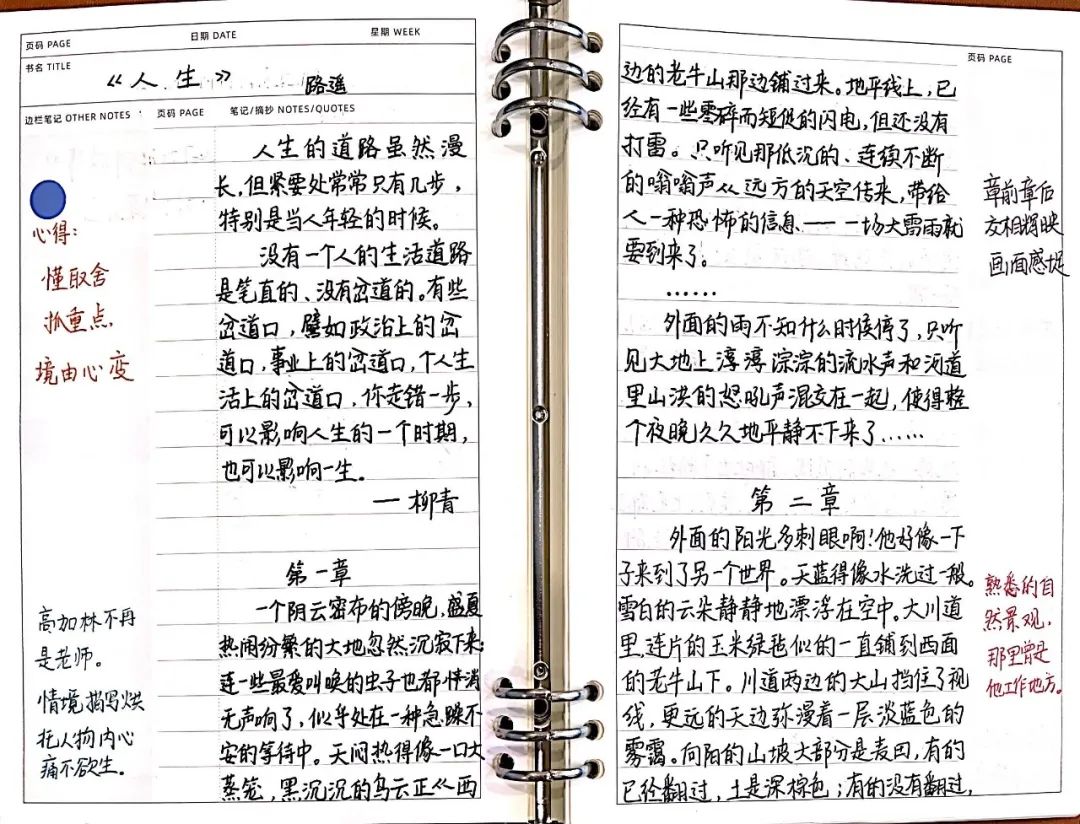 页码 PAGE
日期 DATE
星期 WEEK
书名 TITLE
《人生》 路遥
边栏笔记 OTHER NOTES
页码 PAGE
笔记/摘抄 NOTES/QUOTES
人生的道路虽然漫
长，但紧要处常常只有几步，
特别是当人年轻的时候。
没有一个人的生活道路
是笔直的、没有岔道的。有些
岔道口，譬如政治上的岔
道口，事业上的岔道口，个人生
活上的岔道口，你走错一步，
可以影响人生的一个时期，
也可以影响一生。
——柳青
第一章
一个阴云密布的傍晚，盛夏
热闹纷繁的大地忽然沉寂下来；
连一些最爱叫唤的虫子也都悄消
无声响了，似乎处在一种急躁不
安的等待中。天闷热得像一口大
蒸笼，黑沉沉的乌云正从西
心得：
懂取舍
抓重点
境由心变
高加林不再
是老师。
情境描写烘
托人物内心
痛不欲生。
页码 PAGE
边的老牛山那边铺过来。地平线上，已
经有一些零碎而短促的闪电，但还没有
打雷。只听见那低沉的、连续不断
的嗡嗡声从远方的天空传来，带给
人一种恐怖的信息——一场大雷雨就
要到来了。
……
外面的雨不知什么时候停了，只听
见大地上淳淳淙淙的流水声和河道
里山洪的怒吼声混交在一起，使得整
个夜晚久久地平静不下来了……
第二章
外面的阳光多刺眼啊！他好像一下
子来到了另一个世界。天蓝得像水洗过一般。
雪白的云朵静静地漂浮在空中。大川道
里，连片的玉米绿毡似的一直铺到西面
的老牛山下。川道两边的大山挡住了视
线，更远的天边弥漫着一层淡蓝色的
雾霭。向阳的山坡大部分是麦田，有的
已经翻过，土是深棕色；有的没有翻过，
章前章后
交相辉映
画面感足
熟悉的自
然景观，
那里曾是
他工作地方。